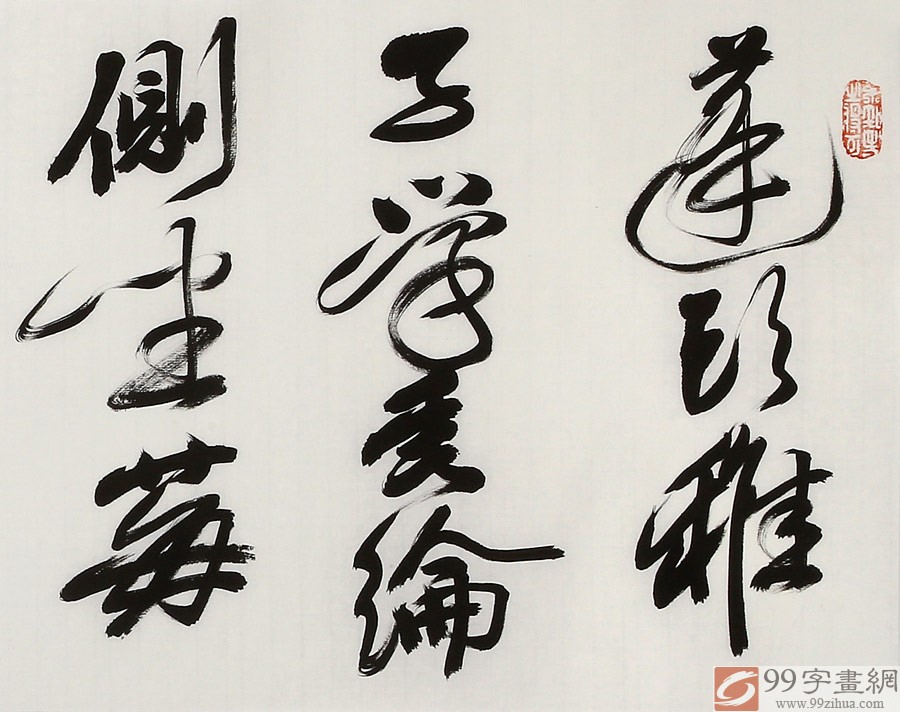 蓬頭稚
子學垂綸
側坐莓
99字畫網
www.99zihua.com